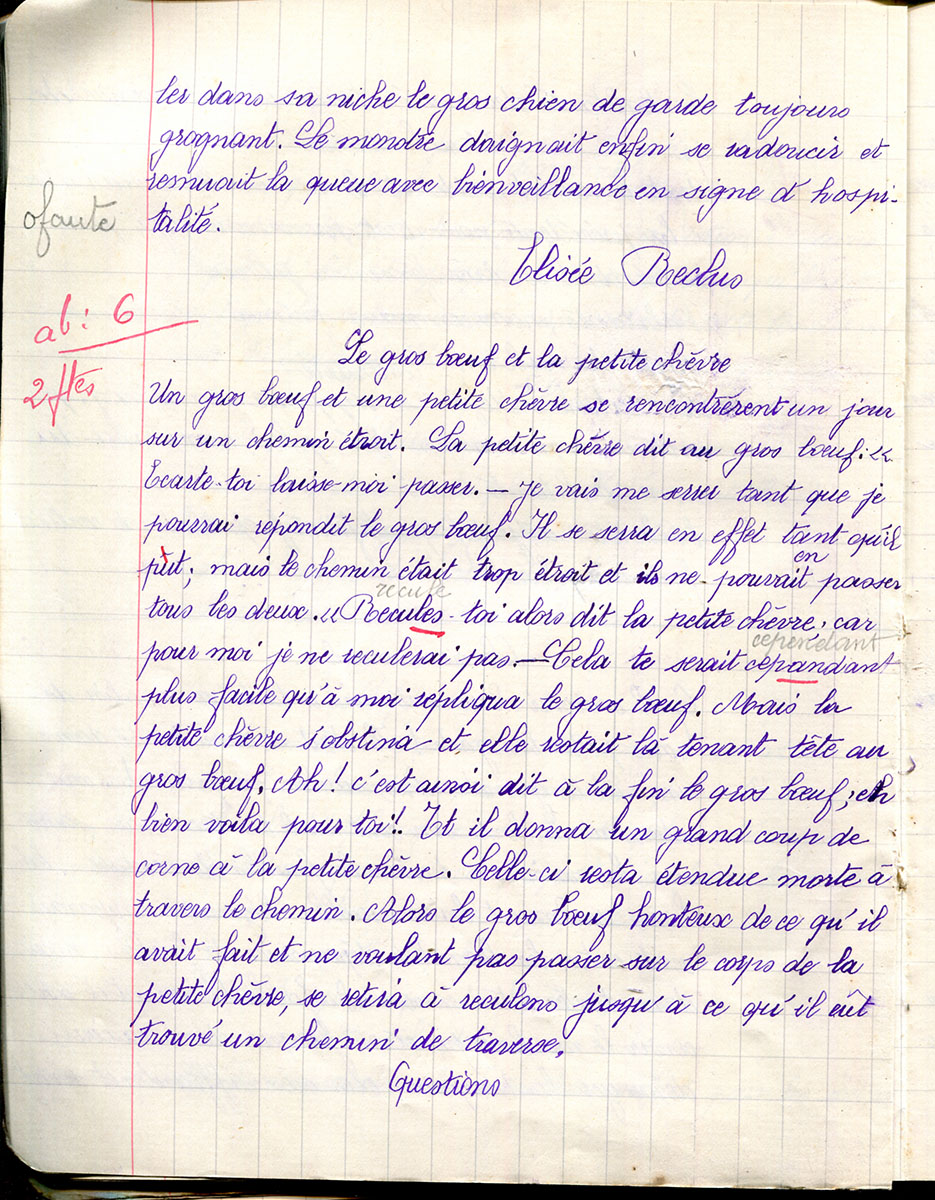 ler dans sa niche le gros chien de garde toujours
grognant. Le monstre daignait enfin se radoucir et
remuait la queue avec bienveillance en signe d'hospi-
0 faute
talité.
Elisée Reclus
ab : 6
2 ftes
Le gros bœuf et la petite chèvre
Un gros bœuf et une petite chèvre se rencontrèrent un jour
sur un chemin étroit. La petite chèvre dit au gros bœuf : «
Ecarte-toi laisse-moi passer. — Je vais me serrer tant que je
pourrai répondit le gros bœuf. Il se serra en effet tant qu'il
put ; mais le chemin était trop étroit et ils ne pouvait passer
en
recule
tous les deux. « Recules-toi alors dit la petite chèvre, car
cependant
pour moi je ne reculerai pas — Cela te serait cepandant
plus facile qu'à moi répliqua le gros bœuf. Mais la
petite chèvre s'obstina et elle restait là tenant tête au
gros bœuf. Ah ! c'est ainsi dit à la fin le gros bœuf ; eh
bien voila pour toi !. Et il donna un grand coup de
corne à la petite chèvre. Celle-ci resta étendue morte à
travers le chemin. Alors le gros bœuf honteux de ce qu'il
avait fait et ne voulant pas passer sur le corps de la
petite chèvre, se retira à reculons jusqu'à ce qu'il eût
trouvé un chemin de traverse.
Questions